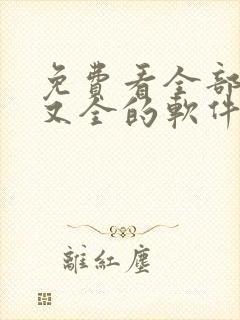 免費看全部
又全的軟件
離紅塵